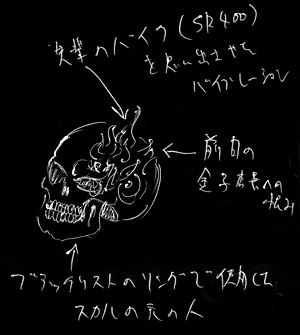 先輩のバイク(SR400)
を思い出させる
バイブレーション
前の
金子店長への
恨み
ブラックリストのリングで使用した
スカルの元の人